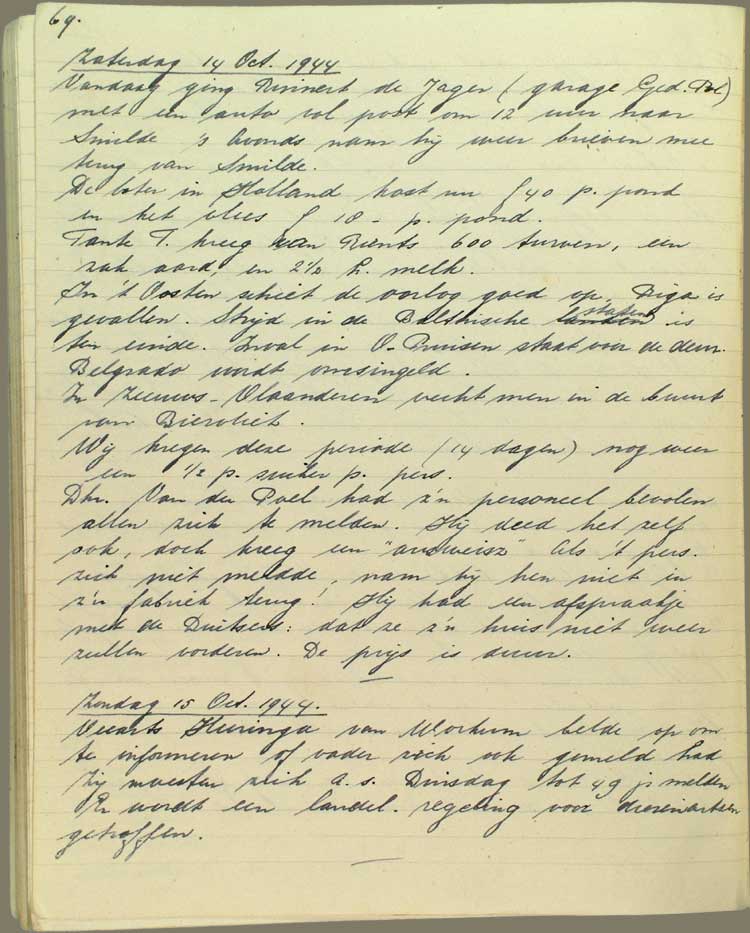 69.
Zaterdag 14 Oct. 1944
Vandaag ging Rinnert de Jager (garage Ged. Pol)
met een auto vol post om 12 uur naar
Smilde 's Avonds nam hij weer brieven mee
terug van Smilde.
De boter in Holland kost nu f 40 p. pond
en het vlees f 18 - p. pond.
Tante T. kreeg van Rients 600 turven, een
zak aard, en 2½ L. melk.
In 't Oosten schiet de oorlog goed op. Riga is
gevallen. Strijd in de Balthische staten is
ten einde. Inval in O. Pruisen staat voor de deur.
Belgrado wordt omsingeld.
In Zeeuws-Vlaanderen vecht men in de buurt
van Biervliet.
Wij kregen deze periode (14 dagen) nog weer
een ½ p. suiker p. pers.
Dhr. Van der Poel had z'n personeel bevolen
allen zich te melden. Hij deed het zelf
ook, doch kreeg een "ausweisz" Als 't pers.
zich niet meldde, nam hij hen niet in
z'n fabriek terug! Hij had een afspraakje
met de Duitsers: dat ze z'n huis niet weer
zullen vorderen. De prijs is duur.
Zondag 15 Oct. 1944.
Veearts Huringa van Workum belde op om
te informeren of vader zich ook gemeld had
Zij moesten zich a.s. Dinsdag tot 49 j. melden
Er wordt een landel. regeling voor dierenartsen
getroffen.